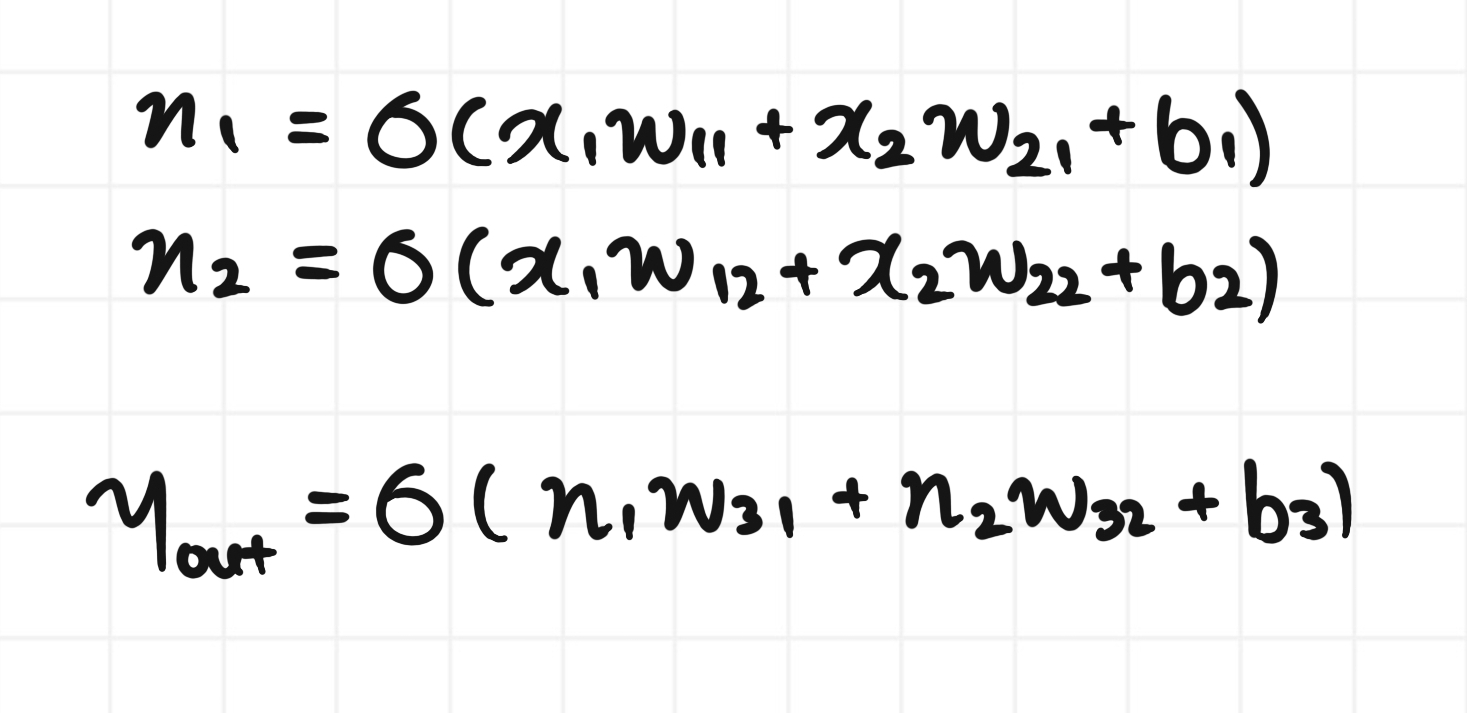 n₁ = σ(x₁w₁₁ + x₂w₂₁ + b₁)
n₂ = σ(x₁w₁₂ + x₂w₂₂ + b₂)
y_out = σ(n₁w₃₁ + n₂w₃₂ + b₃)